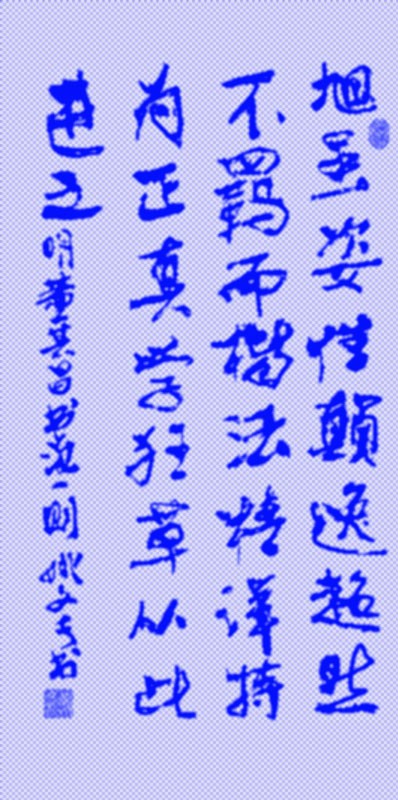 旭虽姿性顛逸超然
不羈而楷法精详特
为正真学狂草从此
进之 明董其昌书论一则 姚文书